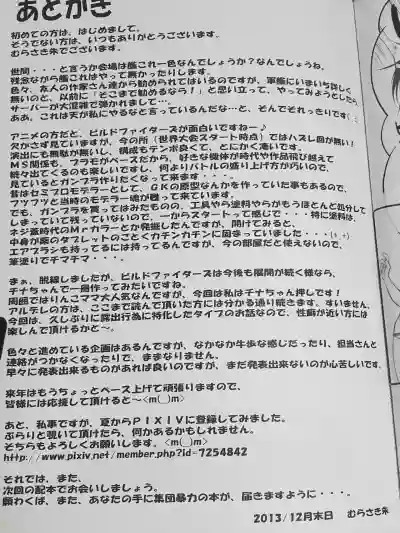 あとがき
初めての方は、はじめまして。
そうでない方は、いつもありがとうございます。
むらさき朱でございます。
世間・・・と言うか会場は艦これ一色なんでしょうか？なんでしょうね。
残念ながら艦これはやって無かったりします。
色々、友人の作家さん達から勧められてはいるのですが、軍艦にいまいち詳しく
無いのと、以前に「そこまで勧めるなら！」と思い立って、やってみようとしたら
サーバーが大混雑で弾かれまして・・・。
ああ、これは天が私にやるなと言っているんだな…と、そんでそれっきりです
アニメの方だと、ビルドファイターズが面白いですね～♪
欠かさず見ていますが、今の所(世界大会スタート時点)ではハズレ回が無い！
演出にも無駄が無いし、構成もテンポ良くて、とにかく凄いです。
MS関係も、プラモがベースだから、好きな機体が時代や作品飛び越えて
続々出てくるのも楽しいですし、何よりバトルの盛り上げ方がいいので、
見ているとガンプラ作りたくなって来ます・・・。
昔はセミプロモデラーとして、GKの原型なんかを作っていた事もあるので、
フツフツと当時のモデラー魂が甦って来ています。
でも、ガンプラを買ってはみたものの、工具やら塗料やらがもうほとんど処分して
しまっていて残っていないので、一からスタートって感じで・・・特に塗料は
ネジ蓋時代のMrカラーとか発掘したんですが、開けてみると、
中身が薬のタブレットのごとくカチンカチンに固まっていました・・・(+_+)
エアブラシも持ってるには持ってるんですが、今の部屋だと使えないので、
筆塗りでチマチマ・・・。
まぁ、脱線しましたが、ビルドファイターズは今後も展開が続く様なら、
チナちゃんで一冊作ってみたいですね。
周囲ではりんこママ大人気なんですが、今回は私はチナちゃん押しです！
アルデレの方は、ここまで読んで頂いた方には分かる通り続きます。すいません。
今回は、久しぶりに露出行為に特化したタイプのお話なので、性癖が近い方には
楽しんで頂けるかと～。
色々と進めている企画はあるんですが、なかなか牛歩な感じだったり、担当さんと
連絡がつかなくなったりで、ままなりません。
早々に発表出来るものがあれば良いのですが、まだ発表出来ないのが心苦しいです。
来年はもうちょっとペース上げて頑張りますので、
皆様には応援して頂けると～<m(__)m>
あと、私事ですが、夏からPIXIVに登録してみました。
ぶらりと覗いて頂けたら、何かあるかもしれません。
そちらもよろしくお願いします。<m(__)m>
http://www.pixiv.net/member.php?id=7254842
それでは、また、
次回の配本でお会いしましょう。
願わくば、また、あなたの手に集団暴力の本が、届きますように・・・。
2013/12月末日 むらさき朱